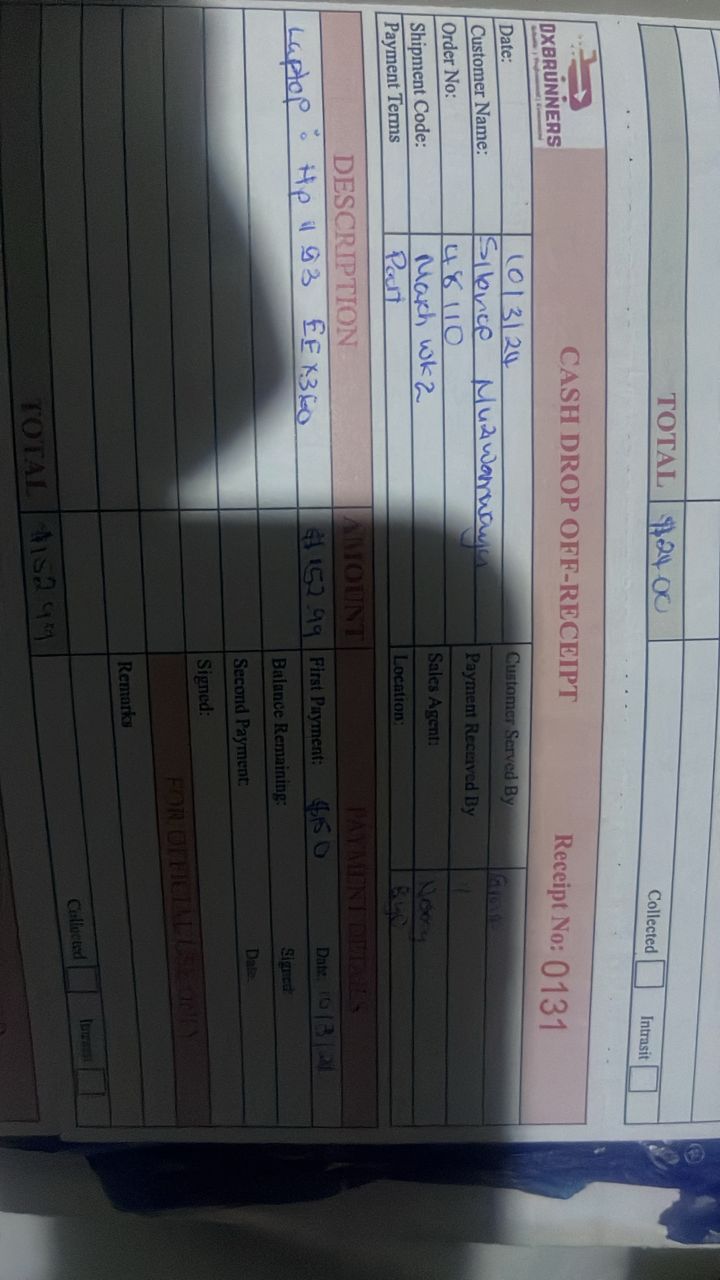 TOTAL $24.00
Collected Intrasit
OXBRUNNERS
CASH DROP OFF-RECEIPT Receipt No: 0131
Date: 10/3/24 Customer Served By
Customer Name: Payment Received By "
Order No: 48110 Sales Agent:
Shipment Code: March WK2 Location: Byo
Payment Terms Part
DESCRIPTION AMOUNT PAYMENT DETAILS
Laptop: Hp 11 G3 EE X360 $152.99 First Payment: $150 Date:
Balance Remaining: Signed:
Second Payment: Date:
Signed:
FOR OFFICIAL USE ONLY
Remarks
TOTAL $152.99
Collected Intrasit